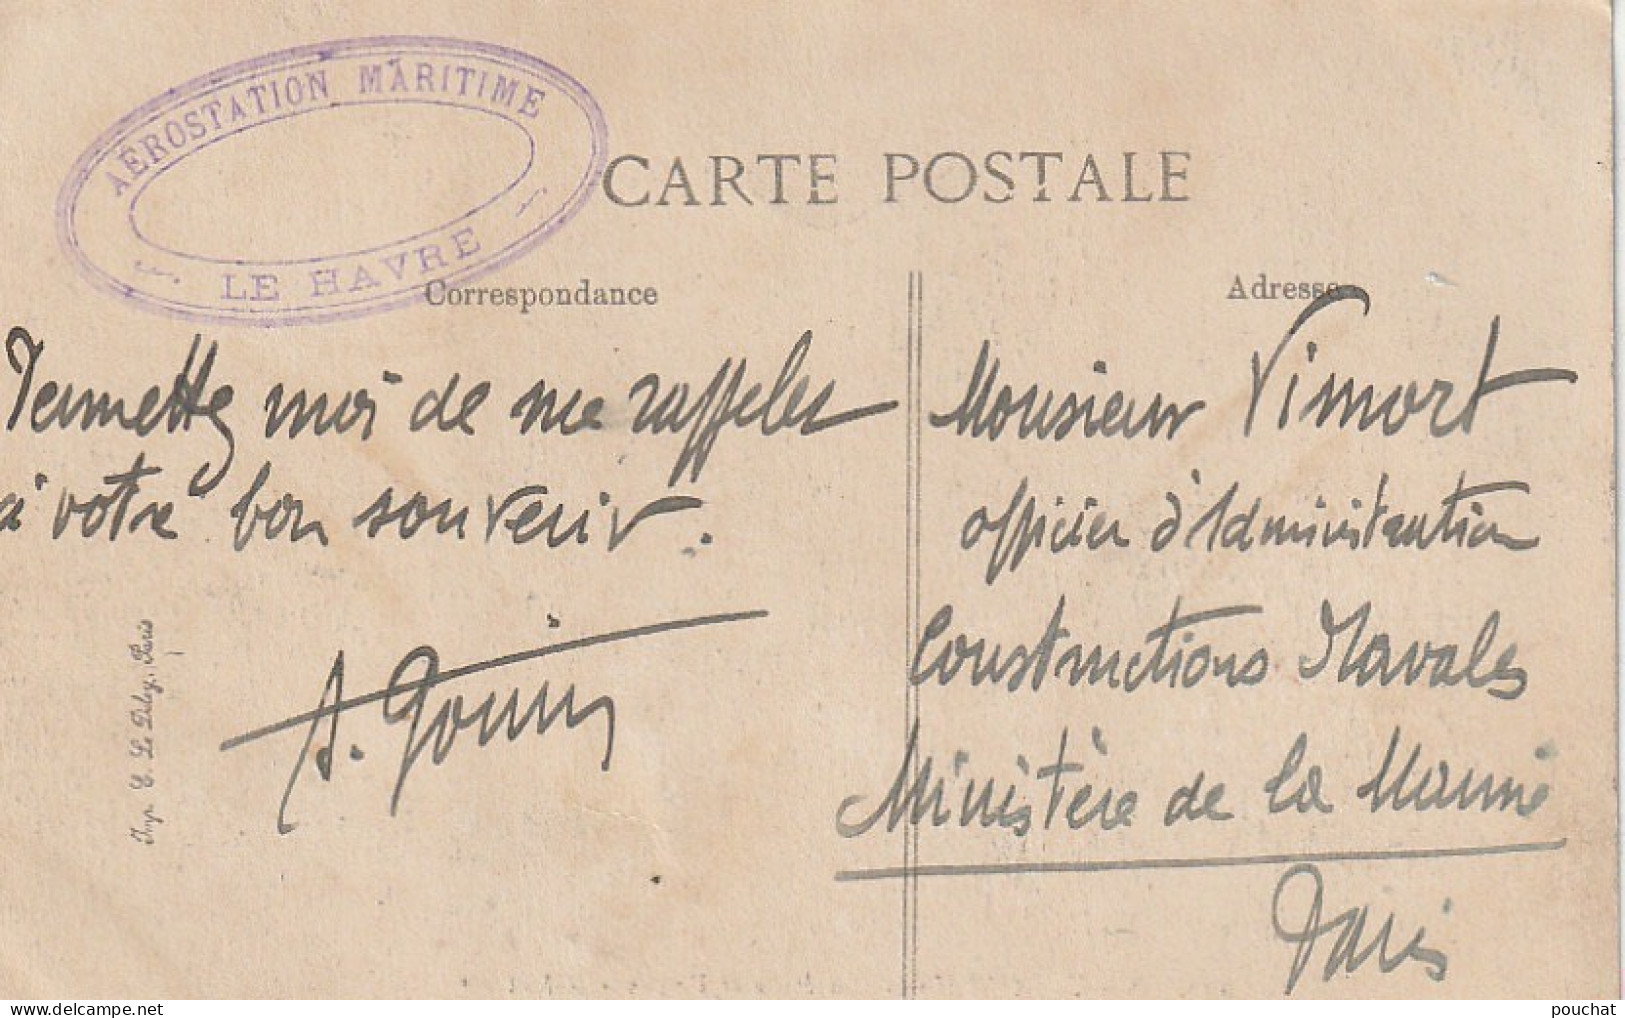 AÉROSTATION MARITIME
LE HAVRE
CARTE POSTALE
Correspondance
Adresse
Permettez moi de me rappeler
à votre bon souvenir.
Monsieur Vimort
officier d'Administration
Constructions Navales
Ministère de la Marine
Paris
Imp. E. Le Deley, Paris
pouchat